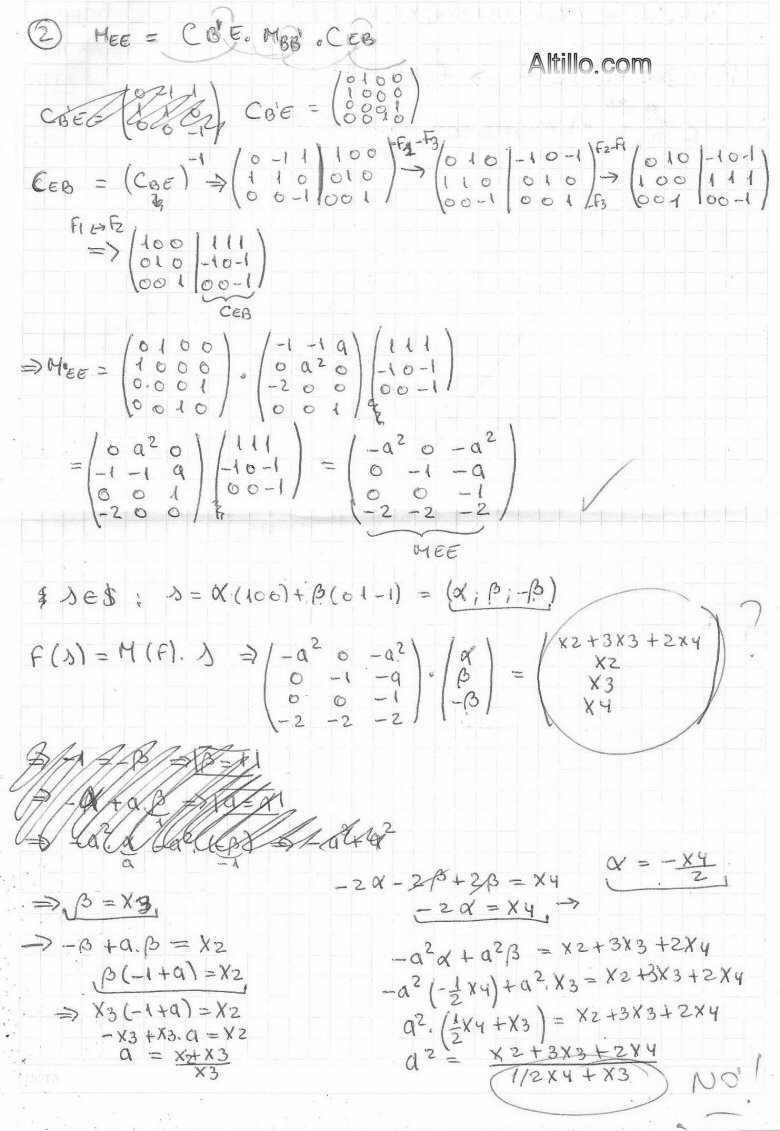 ② M_EE = C_B'E . M_BB' . C_EB
Altillo.com
C_B'E = (0 1 0 0 / 1 0 0 0 / 0 0 0 1 / 0 0 1 0)
C_EB = (C_BE)^-1 ⇒ (0 -1 1 | 1 0 0 / 1 1 0 | 0 1 0 / 0 0 -1 | 0 0 1) → (0 1 0 | -1 0 -1 / 1 1 0 | 0 1 0 / 0 0 -1 | 0 0 1) F2-F1 → -F3 (0 1 0 | -1 0 -1 / 1 0 0 | 1 1 1 / 0 0 1 | 0 0 -1)
F1 ↔ F2
⇒ (1 0 0 | 1 1 1 / 0 1 0 | -1 0 -1 / 0 0 1 | 0 0 -1)
C_EB
⇒ M_EE = (0 1 0 0 / 1 0 0 0 / 0 0 0 1 / 0 0 1 0) . (-1 -1 a / 0 a² 0 / -2 0 0 / 0 0 1) (1 1 1 / -1 0 -1 / 0 0 -1)
= (0 a² 0 / -1 -1 a / 0 0 1 / -2 0 0) (1 1 1 / -1 0 -1 / 0 0 -1) = (-a² 0 -a² / 0 -1 -a / 0 0 -1 / -2 -2 -2) ✓
M_EE
s ∈ S : s = α.(1 0 0) + β(0 1 -1) = (α ; β ; -β)
F(s) = M(F). s ⇒ (-a² 0 -a² / 0 -1 -a / 0 0 -1 / -2 -2 -2) . (α / β / -β) = (x2 + 3x3 + 2x4 / x2 / x3 / x4) ?
⇒ β = x3
→ -β + a.β = x2
β(-1 + a) = x2
⇒ x3(-1 + a) = x2
-x3 + x3.a = x2
a = x2 + x3 / x3
-2α - 2β + 2β = x4
-2α = x4 →
α = -x4/2
-a²α + a²β = x2 + 3x3 + 2x4
-a²(-1/2 x4) + a².x3 = x2 + 3x3 + 2x4
a².(1/2 x4 + x3) = x2 + 3x3 + 2x4
a² = x2 + 3x3 + 2x4 / 1/2 x4 + x3
NO!